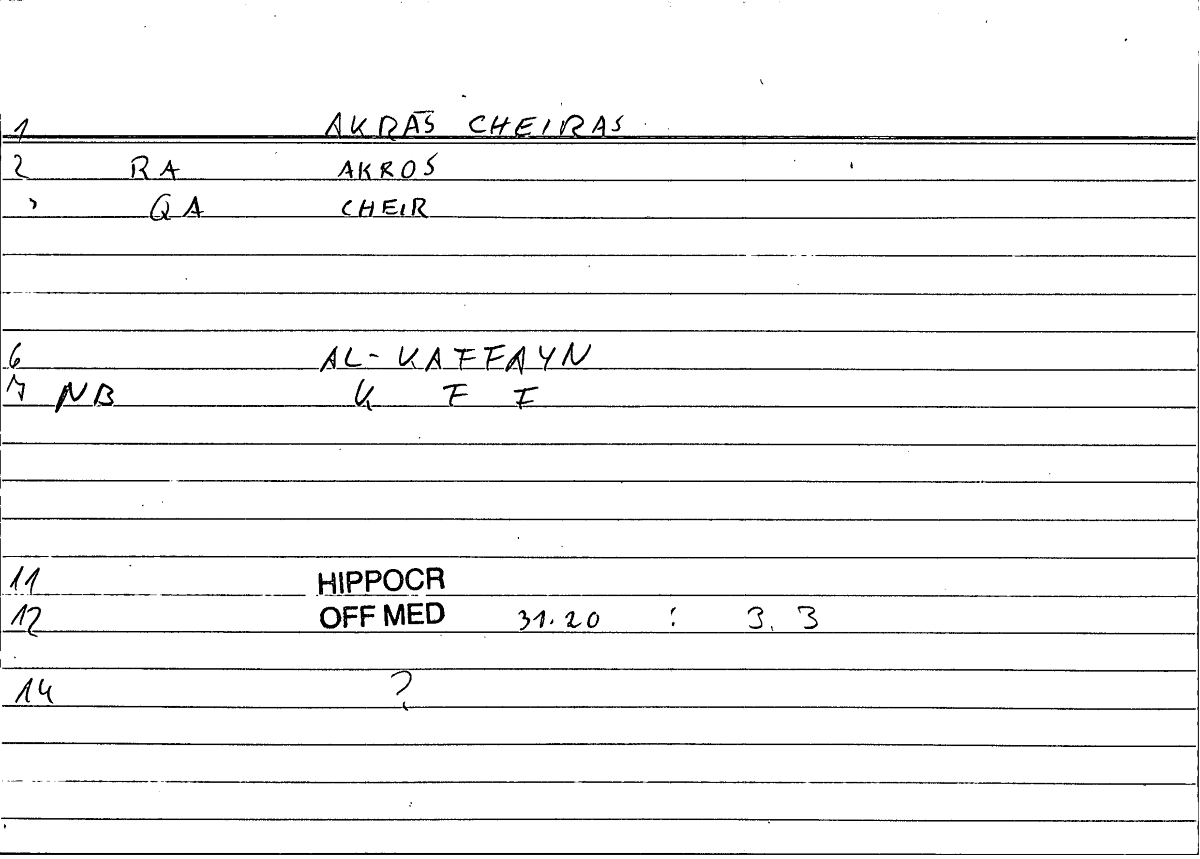 1 AKRĀS CHEIRAS
2 RA AKROS
QA CHEIR
6 AL-KAFFAYN
7 NB K F F
11 HIPPOCR
12 OFF MED 31.20 : 3.3
14 ?